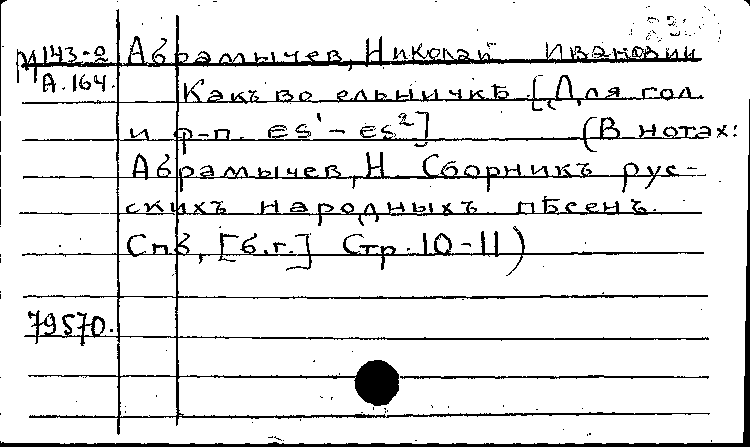 М 143-2 Абрамычев, Николай Иванович
А.164. Какъ во ельничкѣ. [Для гол.
и ф-п. es¹ - es²] (В нотах:
Абрамычев, Н. Сборникъ рус-
скихъ народныхъ пѣсенъ.
Спб, [б.г.] Стр. 10-11)
79570.